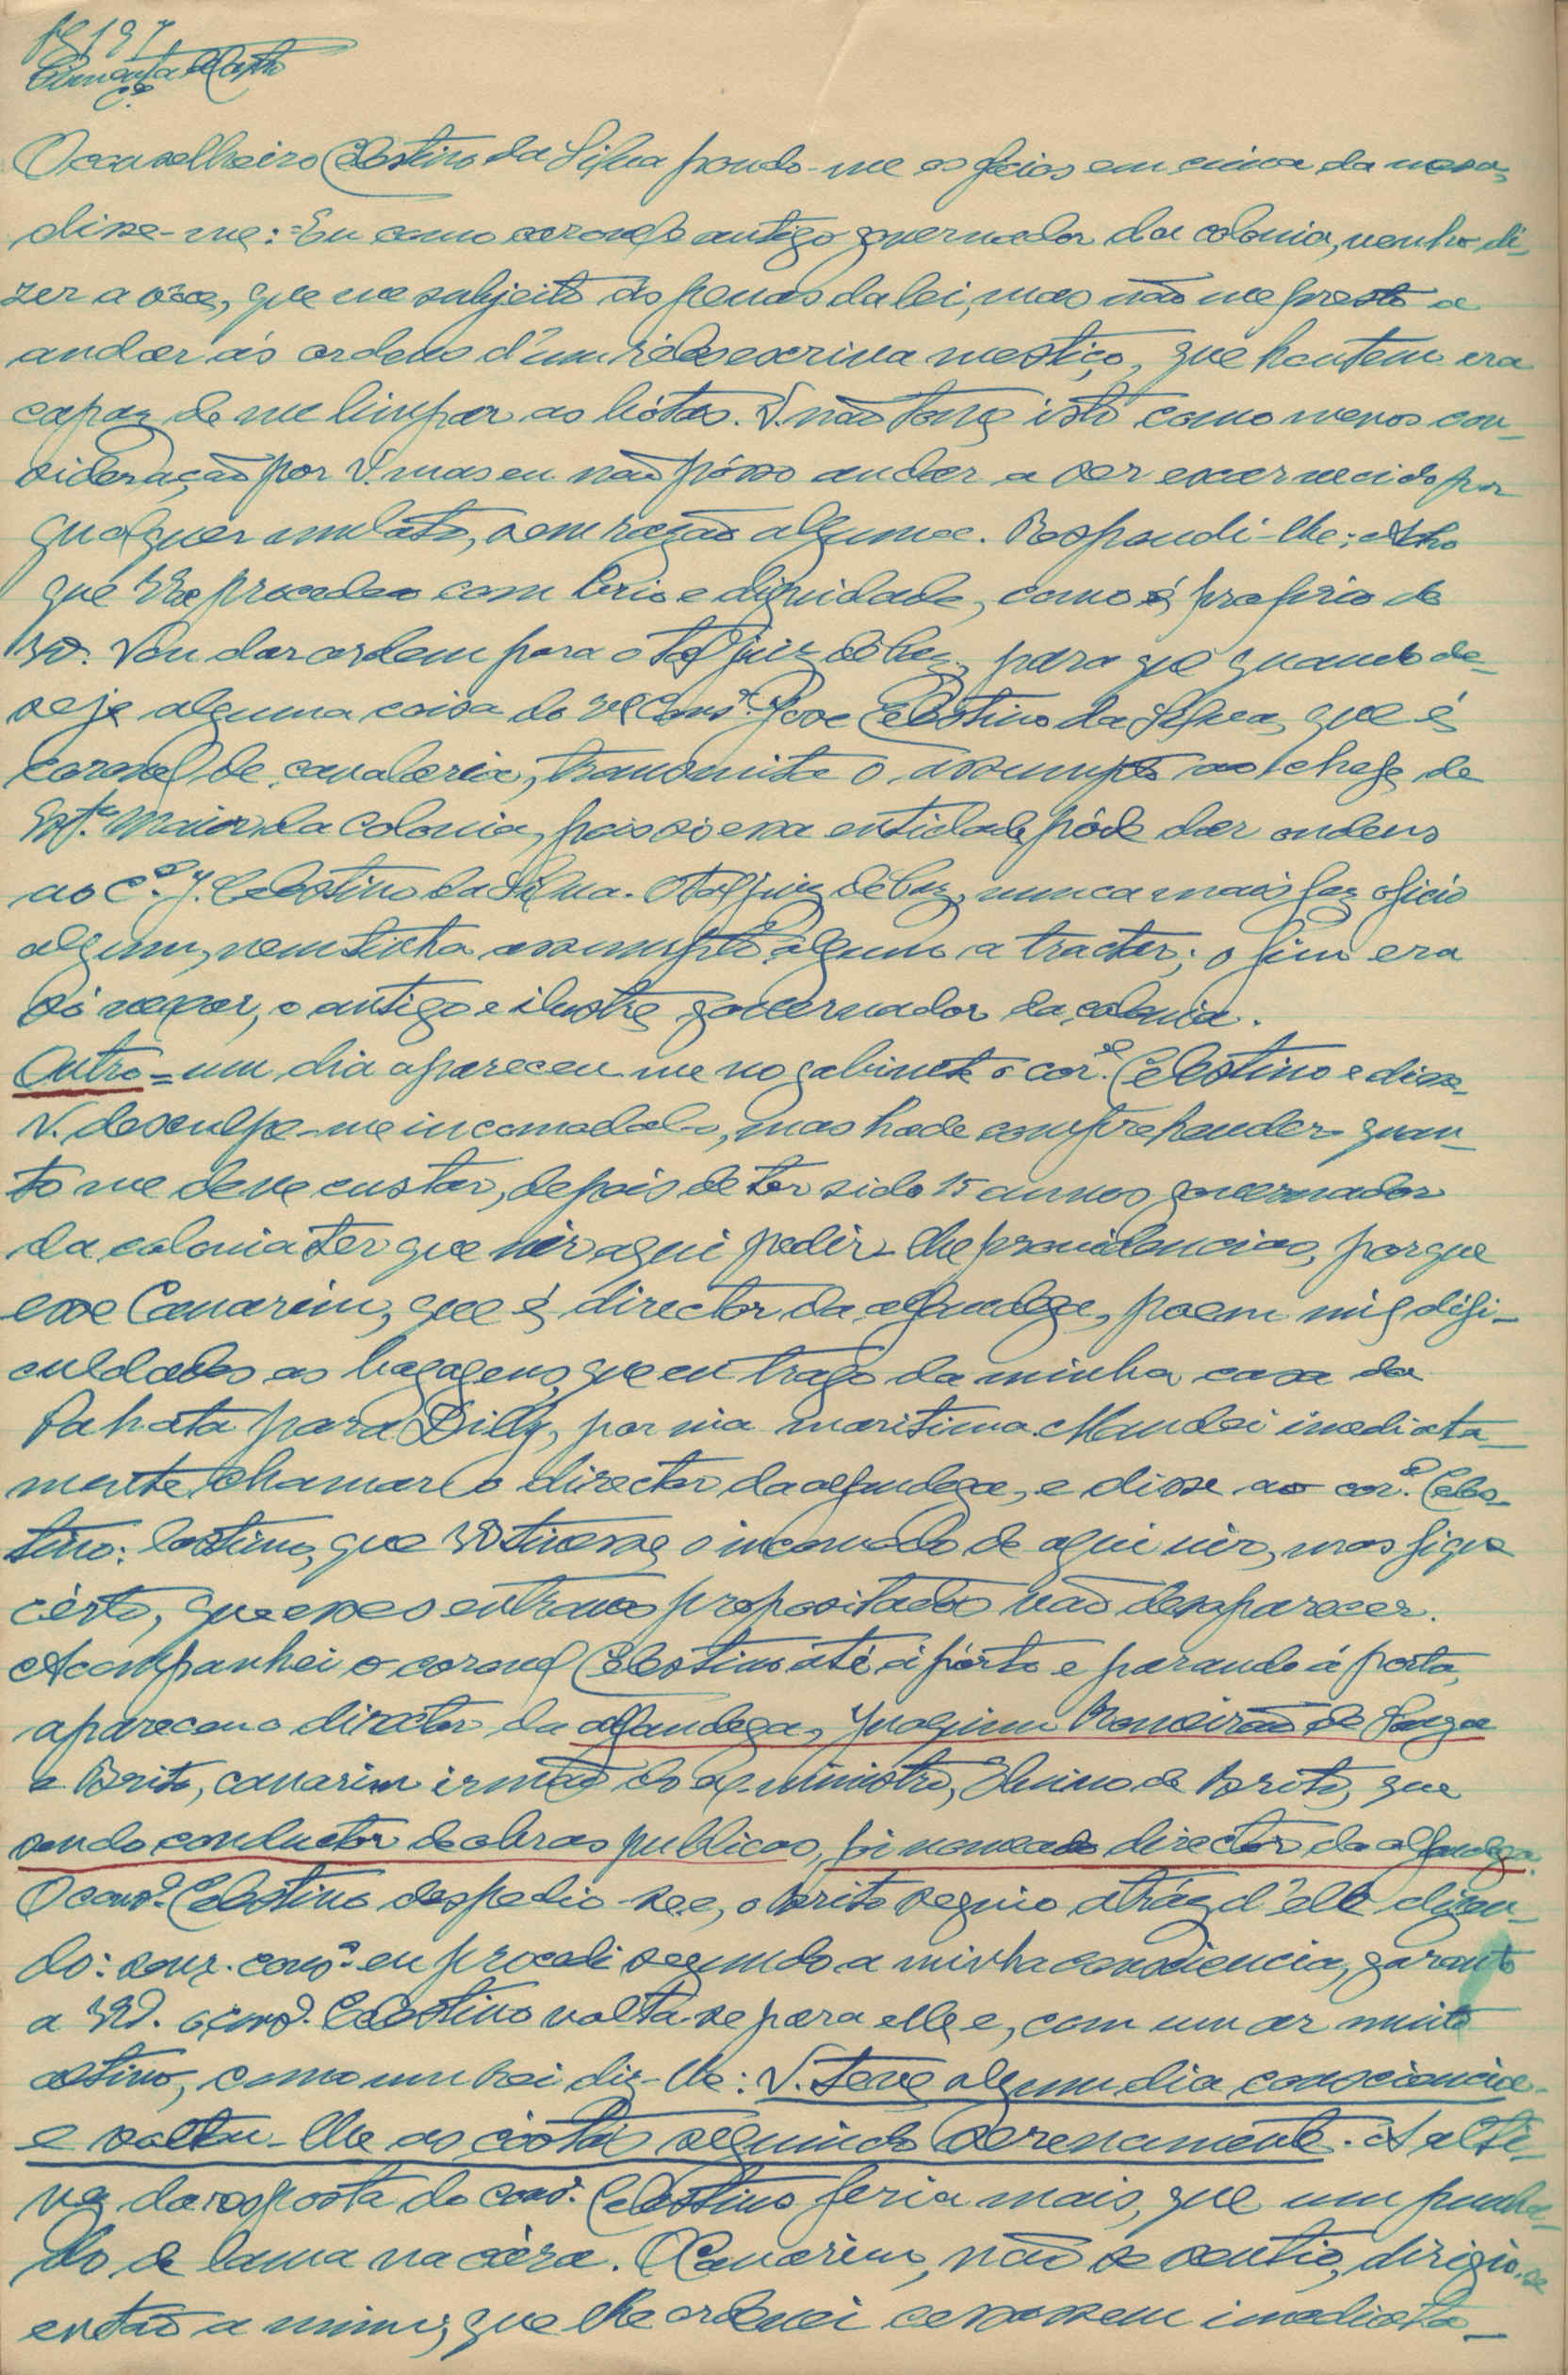 fl 197
Pimenta de Castro
C.el
O conselheiro Celestino da Silva pondo-me os oficios em cima da mesa,
disse-me: = Eu como coronel e antigo governador da colonia, venho di-
zer a v. que me subjeito ás penas da lei, mas não me presto a
andar ás ordens d'um réles escriva mestiço, que hontem era
capaz de me limpar as bótas. V. não tome isto como menos con-
sideração por V. mas eu não pósso andar a ser escarnecido por
qualquer mulato, sem razão alguma. Respondi-lhe: Acho
que VEx procedeo com brio e dignidade, como é proprio de
VEx. Vou dar ordem para o tal juiz de Paz, para que quando de-
seje alguma coisa do Cons.º Jose Celestino da Silva, que é
coronel de cavalaria, transmita o assumpto ao chefe de
Est.º Maior da Colonia, pois só essa entidade póde dar ordens
ao C.el J. Celestino da Silva. O tal juiz de Paz, nunca mais fez oficio
algum, nem tinha assumpto algum a tractar; o fim era
só vexar, o antigo e ilustre governador da colonia.
Outro = um dia apareceu me no gabinete o cor.el Celestino e disse-
V. desculpe-me incomodal-o, mas hade comprehender quan-
to me deve custar, depois de ter sido 15 annos governador
da colonia ter que vir aqui pedir-lhe providencias, porque
esse Canarim, que é director da alfandega, poem mil difi-
culdades as bagagens, que eu trago da minha casa da
Fahata para Dilly, por via maritima. Mandei imediata-
mente chamar o director da alfandega, e disse ao cor.el Celes-
tino: lastimo, que VEx tivesse o incomodo de aqui vir, mas fique
cérto, que esses entraves propositados vão desaparecer.
Acompanhei o coronel Celestino até á pórta e parando á porta,
apareceu o director da alfandega, Joaquim Roncisão de Souza
e Brito, canarim irmão do ex-ministro, Elvino de Brito, que
sendo conductor de obras publicas, foi nomeado director da alfandega.
O cons.º Celestino despedio-se e, o brito seguio atráz d'elle dizen-
do: senr. cons.º eu procedi segundo a minha consciencia, garanto
a VEx. o cons.º Celestino volta-se para elle e, com um ar muito
altivo, como um rei diz-lhe: V. teve algum dia consciencia-
e voltou-lhe as cóstas seguindo serenamente. A alti-
vez da resposta do cons.º Celestino feria mais, que um punha-
do de lama na cára. O Canarim, não se sentio, dirigio-se
então a mim, que lhe ordenei cessassem imediata-